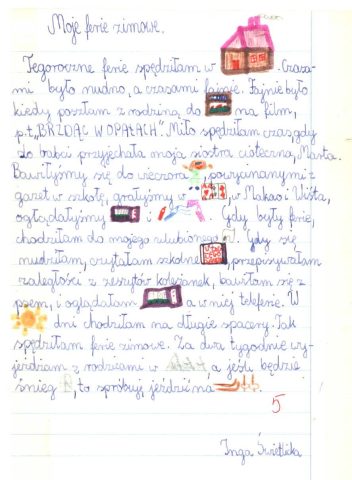 Moje ferie zimowe.
Tegoroczne ferie spędziłam w . Czasa-
mi było nudno, a czasami fajnie. Fajnie było
kiedy poszłam z rodziną do na film,
p.t. „BRZDĄC W OPAŁACH". Miło spędziłam czas, gdy
do babci przyjechała moja siostra cioteczna, Marta.
Bawiłyśmy się do wieczora , powycinanymi z
gazet w szkołę, grałyśmy w , w Makao i Wista,
oglądałyśmy i . Gdy były ferie,
chodziłam do mojego ulubionego . Gdy się
nudziłam, czytałam szkolne , przepisywałam
zaległości z zeszytów koleżanek, bawiłam się z
psem, i oglądałam a w niej teleferie. W
dni chodziłam na długie spacery. Tak
spędziłam ferie zimowe. Za dwa tygodnie wy-
jeżdżam z rodzicami w a jeśli będzie
śnieg , to spróbuję jeździć na
5
Inga Świetlicka